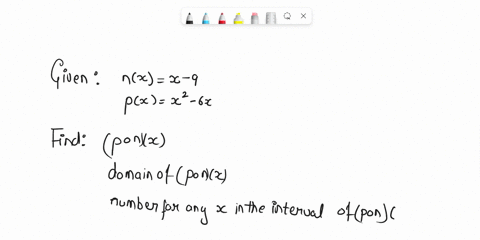 Given: n(x) = x-9
p(x) = x² - 6x
Find: (pon)(x)
domain of (pon)(x)
number for any x in the interval of (pon)(